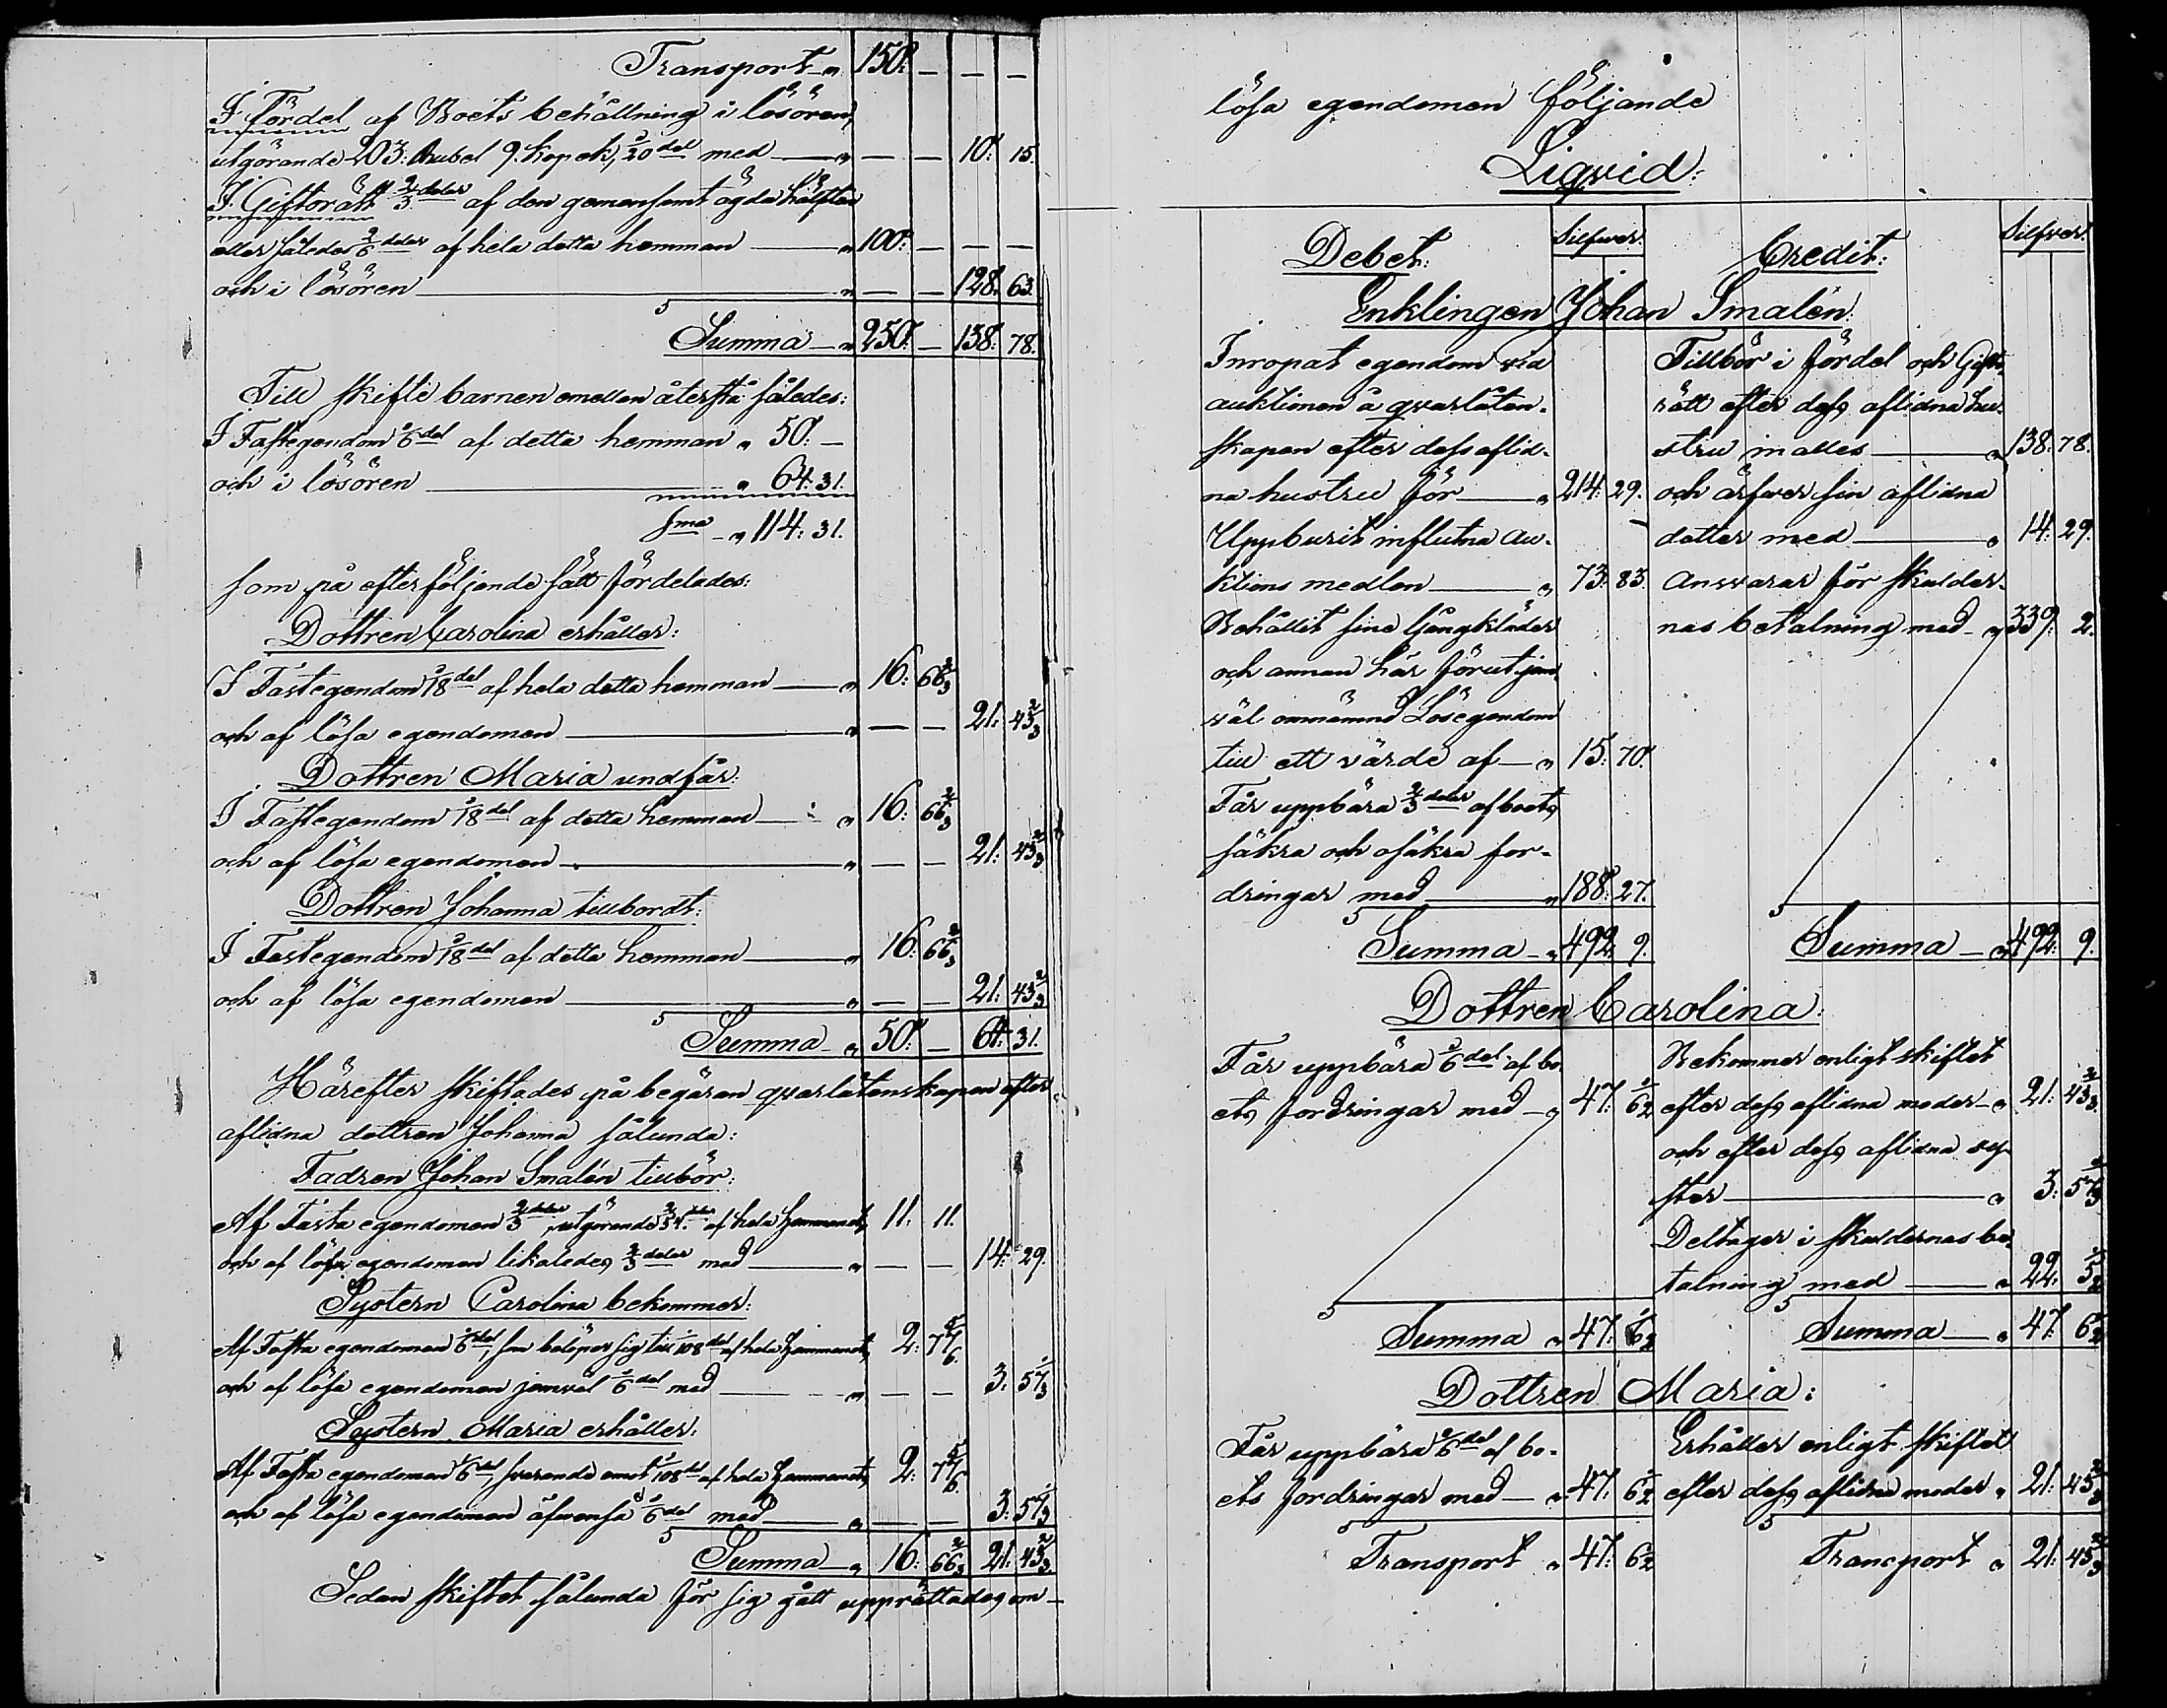 Transport „ 150: — — —
I Fördel af Boets behållning i lösören,
utgörande 203: Rubel 9. kopek, 1/20 del med — „ — — 10: 15.
I Giftorätt 2/3 delar af den gemensamt ägda hälften
eller således 2/6 delar af hela detta hemman — „ 100: — — —
och i lösören — „ — — 128: 63.
Summa — „ 250: — 138: 78.
Till skifte barnen emellan återstå således:
I Fastegendom 1/6 del af detta hemman „ 50: —
och i lösören — „ 64: 31.
Sma — „ 114: 31.
som på efterföljande sätt fördelades:
Dottren Carolina erhåller:
I Fastegendom 1/18 del af hela detta hemman — „ 16: 66 2/3
och af lösa egendomen — „ — — 21: 43 2/3
Dottren Maria undfår:
I Fastegendom 1/18 del af detta hemman — „ 16: 66 2/3
och af lösa egendomen — „ — — 21: 43 2/3
Dottren Johanna tillbordt:
I Fastegendom 1/18 del af detta hemman — „ 16: 66 2/3
och af lösa egendomen — „ — — 21: 43 2/3
Summa — „ 50: — 64: 31.
Härefter skiftades på begäran qvarlåtenskapen efter
aflidna dottren Johanna sålunda:
Fadren Johan Smalén tillbör:
Af Fasta egendomen 2/3 delar, utgörande 2/54 delar af hela hemmanet, 11: 11.
och af lösa egendomen likaledes 2/3 delar med — „ — — 14: 29.
Systern Carolina bekommer:
Af Fasta egendomen 1/6 del, som belöper sig till 1/108 del af hela hemmanet, 2: 77 4/6
och af lösa egendomen jemväl 1/6 del med — „ — — 3: 57 1/3
Systern Maria erhåller:
Af Fasta egendomen 1/6 del, svarande emot 1/108 del af hela hemmanet, 2: 77 4/6
och af lösa egendomen äfvenså 1/6 del med — „ — — 3: 57 1/3
Summa — „ 16: 66 2/3 21: 43 2/3.
Sedan skiftet sålunda för sig gått upprättades om —
lösa egendomen följande
Liqvid:
Debet: Silfver. Credit: Silfver.
Enklingen Johan Smalén:
Inropat egendom vid
auktionen å qvarlåten-
skapen efter dess aflid-
na hustru för — „ 214: 29.
Uppburit influtna au-
ktions medlen — „ 73: 83.
Behållit sine Gångkläder
och annan här förut jem
väl omnämnd Lösegendom
till ett värde af — „ 15: 70.
Får uppbära 2/3 delar af boets
säkra och osäkra for-
dringar med — „ 188: 27.
Summa — „ 492: 9.
Tillbör i fördel och Gifto
rätt efter dess aflidna hu-
stru in alles — „ 138: 78.
och ärfver sin aflidna
dotter med — „ 14: 29.
Ansvarar för skulder-
nas betalning med — „ 339: 2.
Summa — „ 492: 9.
Dottren Carolina:
Får uppbära 1/6 del af bo-
ets fordringar med — „ 47: 6 1/2
Summa „ 47: 6 1/2
Bekommer enligt skiftet
efter dess aflidna moder — „ 21: 43 2/3.
och efter dess aflidna sy-
ster — „ 3: 57 1/3
Deltager i skuldernas be-
talning med — „ 22: 5 1/2
Summa — „ 47: 6 1/2
Dottren Maria:
Får uppbära 1/6 del af bo-
ets fordringar med — „ 47: 6 1/2
Transport „ 47: 6 1/2
Erhåller enligt skiftet
efter dess aflidna moder „ 21: 43 2/3
Transport „ 21: 43 2/3